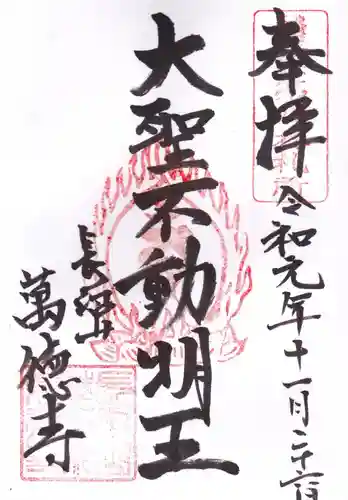 奉拝
令和元年十一月二十六日
大聖不動明王
長沼山
萬徳寺